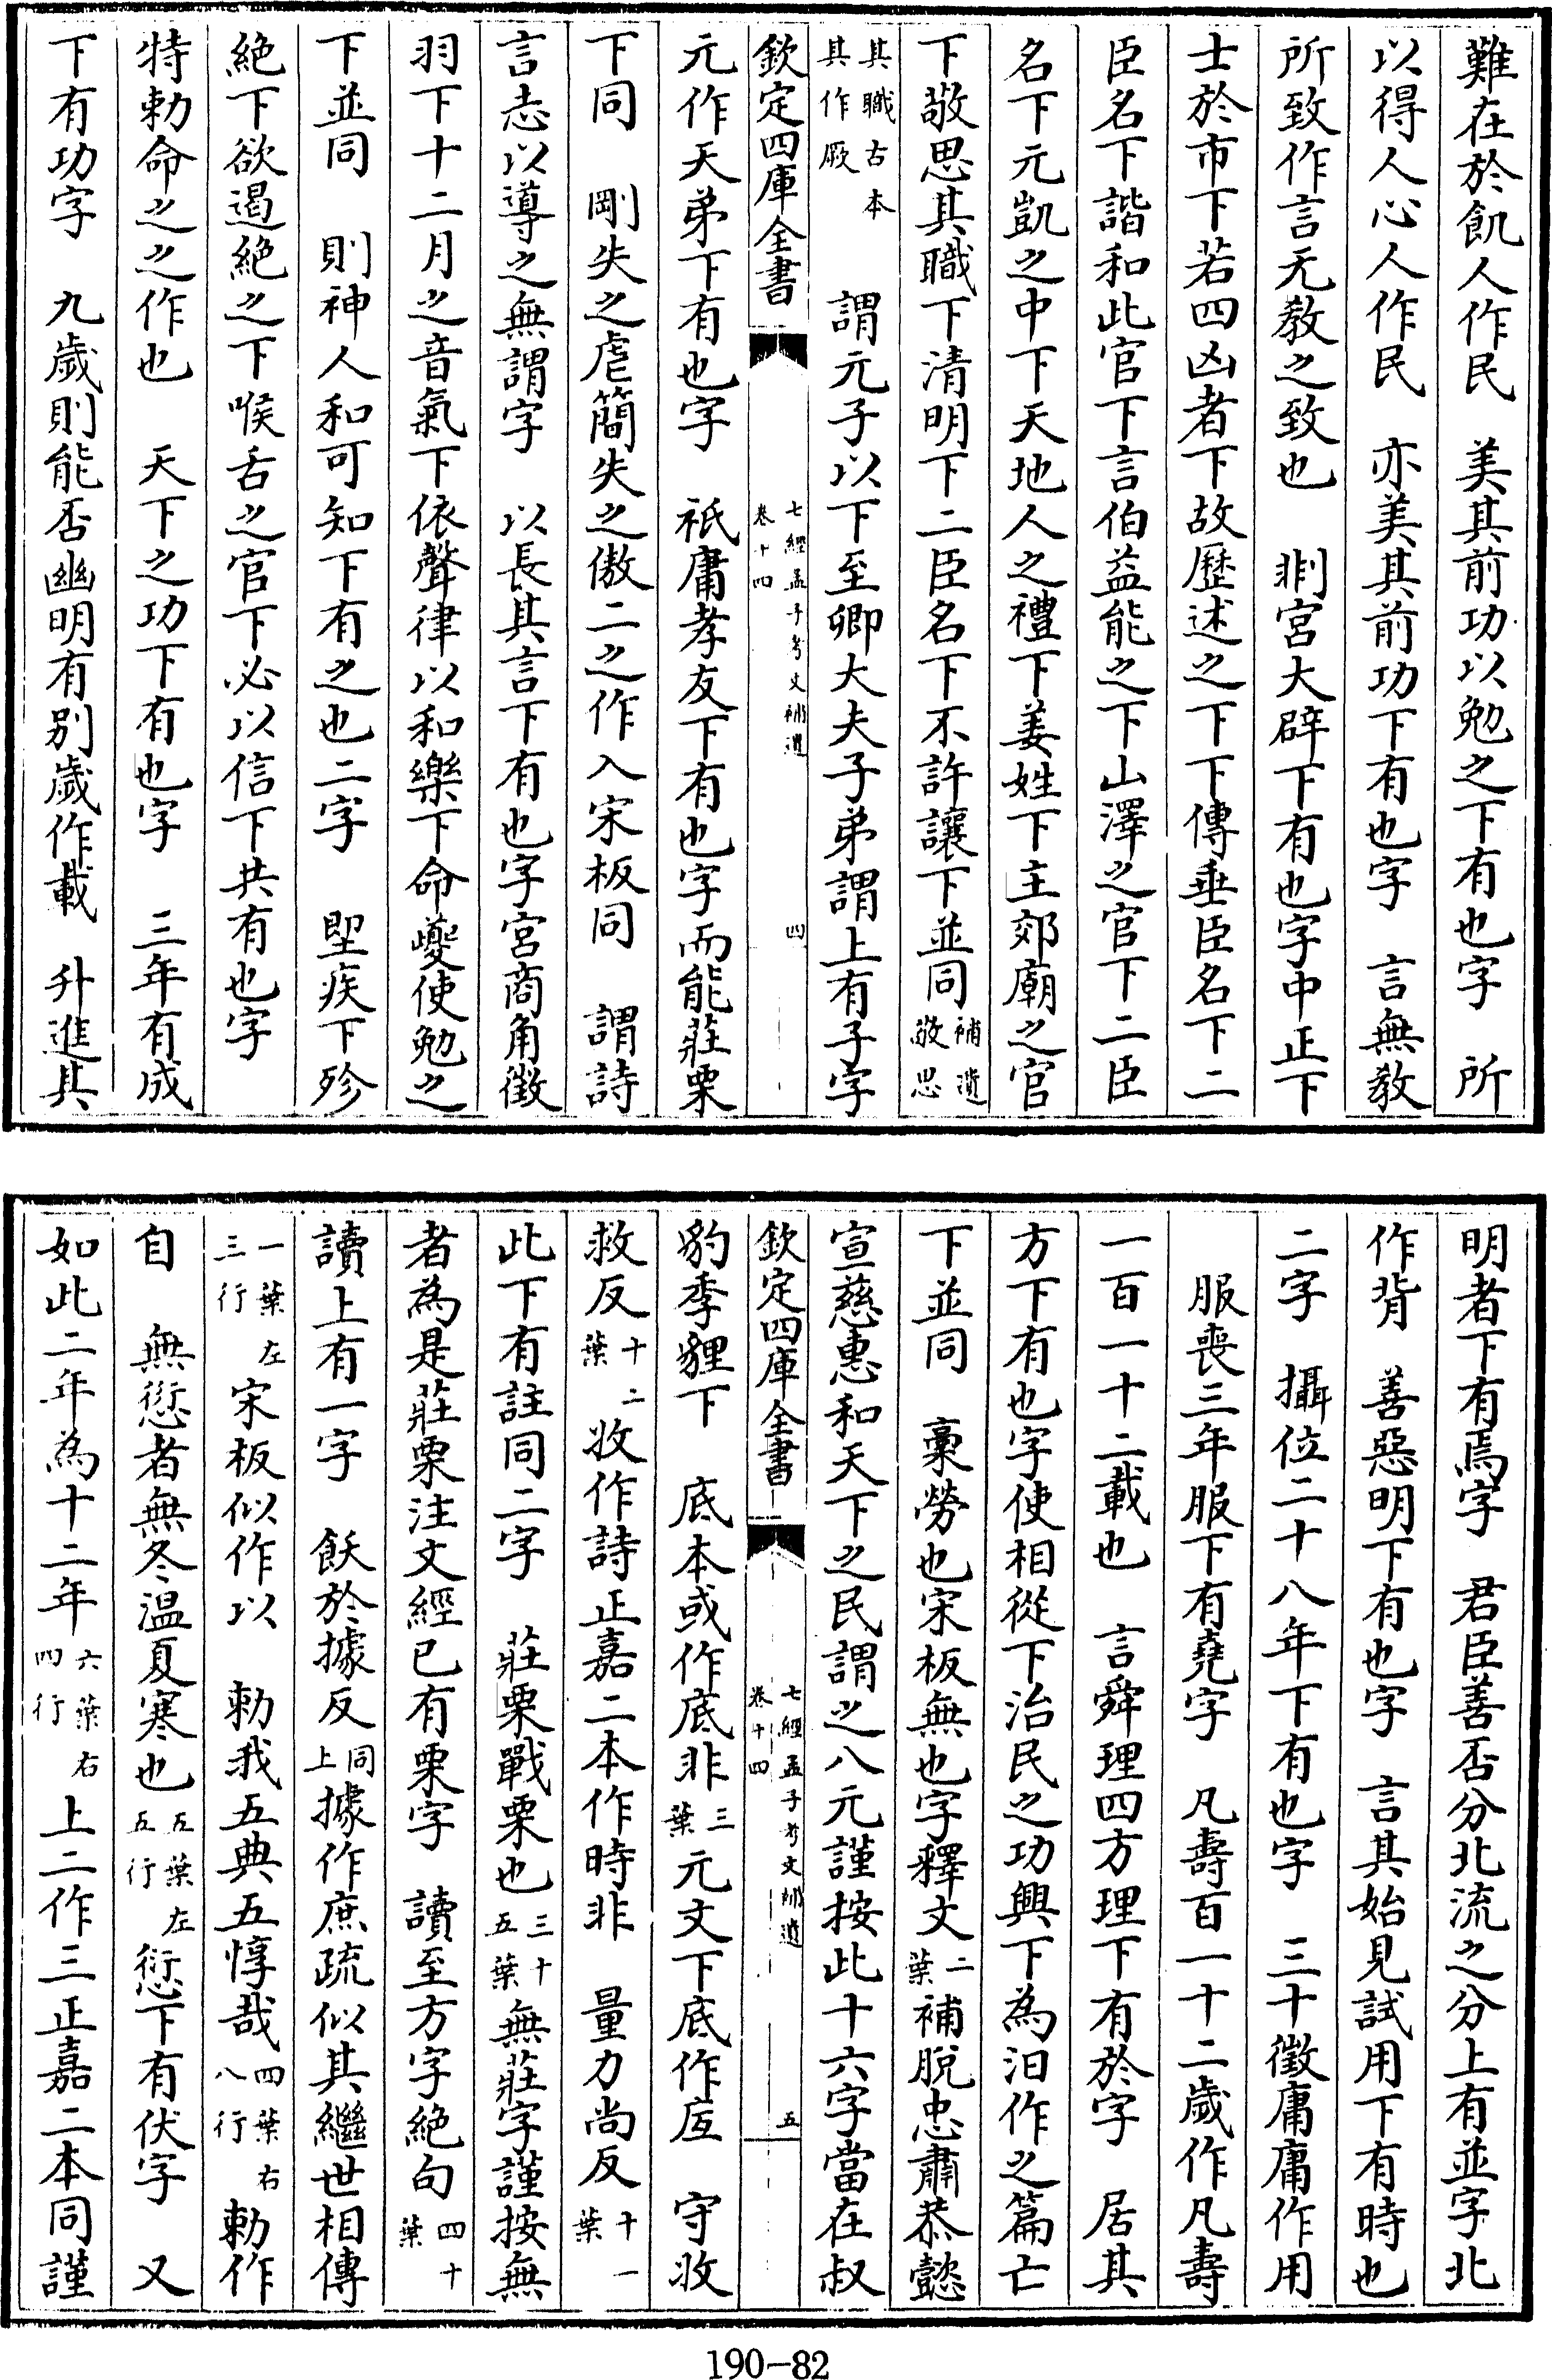 難在於飢人作民　美其前功以勉之下有也字　所
以得人心人作民　亦美其前功下有也字　言無教
所致作言无教之致也　剕宮大辟下有也字中正下
士於市下若四凶者下故歷述之下下傳垂臣名下二
臣名下諧和此官下言伯益能之下山澤之官下二臣
名下元凱之中下天地人之禮下姜姓下主郊廟之官
下敬思其職下清明下二臣名下不許讓下並同補遺敬思
其職古本其作厥　謂元子以下至卿大夫子弟謂上有子字
欽定四庫全書　七經孟子考文補遺　卷十四　四
元作天弟下有也字　祇庸孝友下有也字而能莊栗
下同　剛失之虐簡失之傲二之作入宋板同　謂詩
言志以導之無謂字　以長其言下有也字宮商角徵
羽下十二月之音氣下依聲律以和樂下命夔使勉之
下並同　則神人和可知下有之也二字　堲疾下殄
絕下欲遏絕之下喉舌之官下必以信下共有也字
特勅命之之作也　天下之功下有也字　三年有成
下有功字　九歲則能否幽明有別歲作載　升進其
明者下有焉字　君臣善否分北流之分上有並字北
作背　善惡明下有也字　言其始見試用下有時也
二字　攝位二十八年下有也字　三十徵庸庸作用
服喪三年服下有堯字　凡壽百一十二歲作凡壽
一百一十二載也　言舜理四方理下有於字　居其
方下有也字使相從下治民之功興下為汩作之篇亡
下並同　稾勞也宋板無也字釋文二葉補脫忠肅恭懿
宣慈惠和天下之民謂之八元謹按此十六字當在叔
欽定四庫全書　七經孟子考文補遺　卷十四　五
豹季貍下　底本或作底非三葉元文下底作㡳　守收
救反十二葉收作詩正嘉二本作時非　量力尚反十一葉
此下有註同二字　莊栗戰栗也三十五葉無莊字謹按無
者為是莊栗注文經已有栗字　讀至方字絕句四十葉
讀上有一字　飫於據反同上據作庶疏似其繼世相傳
一葉左三行宋板似作以　勅我五典五惇哉四葉右八行勅作
自　無愆者無冬溫夏寒也五葉左五行愆下有伏字　又
如此二年為十二年六葉右四行上二作三正嘉二本同謹
190-82